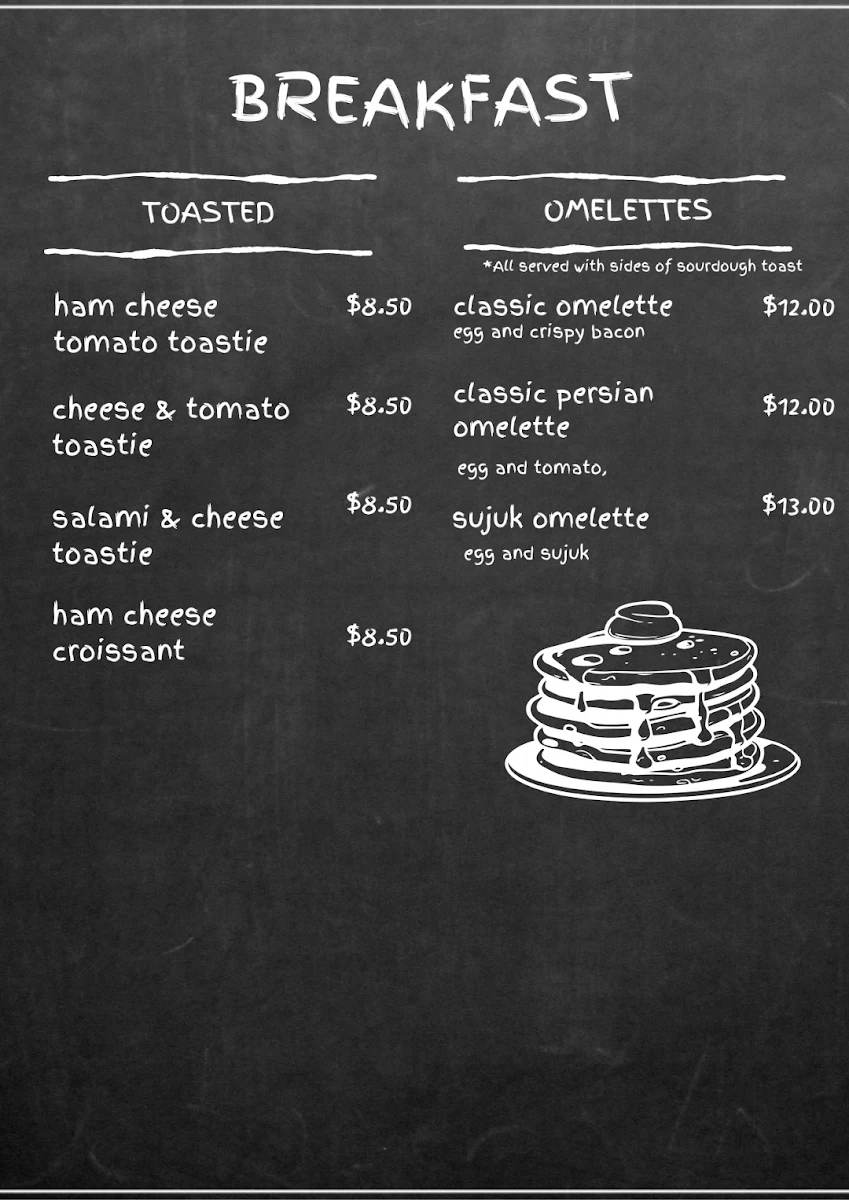 BREAKFAST
TOASTED
ham cheese $8.50
tomato toastie
cheese & tomato $8.50
toastie
salami & cheese $8.50
toastie
ham cheese
croissant $8.50
OMELETTES
*All served with sides of sourdough toast
classic omelette $12.00
egg and crispy bacon
classic persian $12.00
omelette
egg and tomato,
sujuk omelette $13.00
egg and sujuk